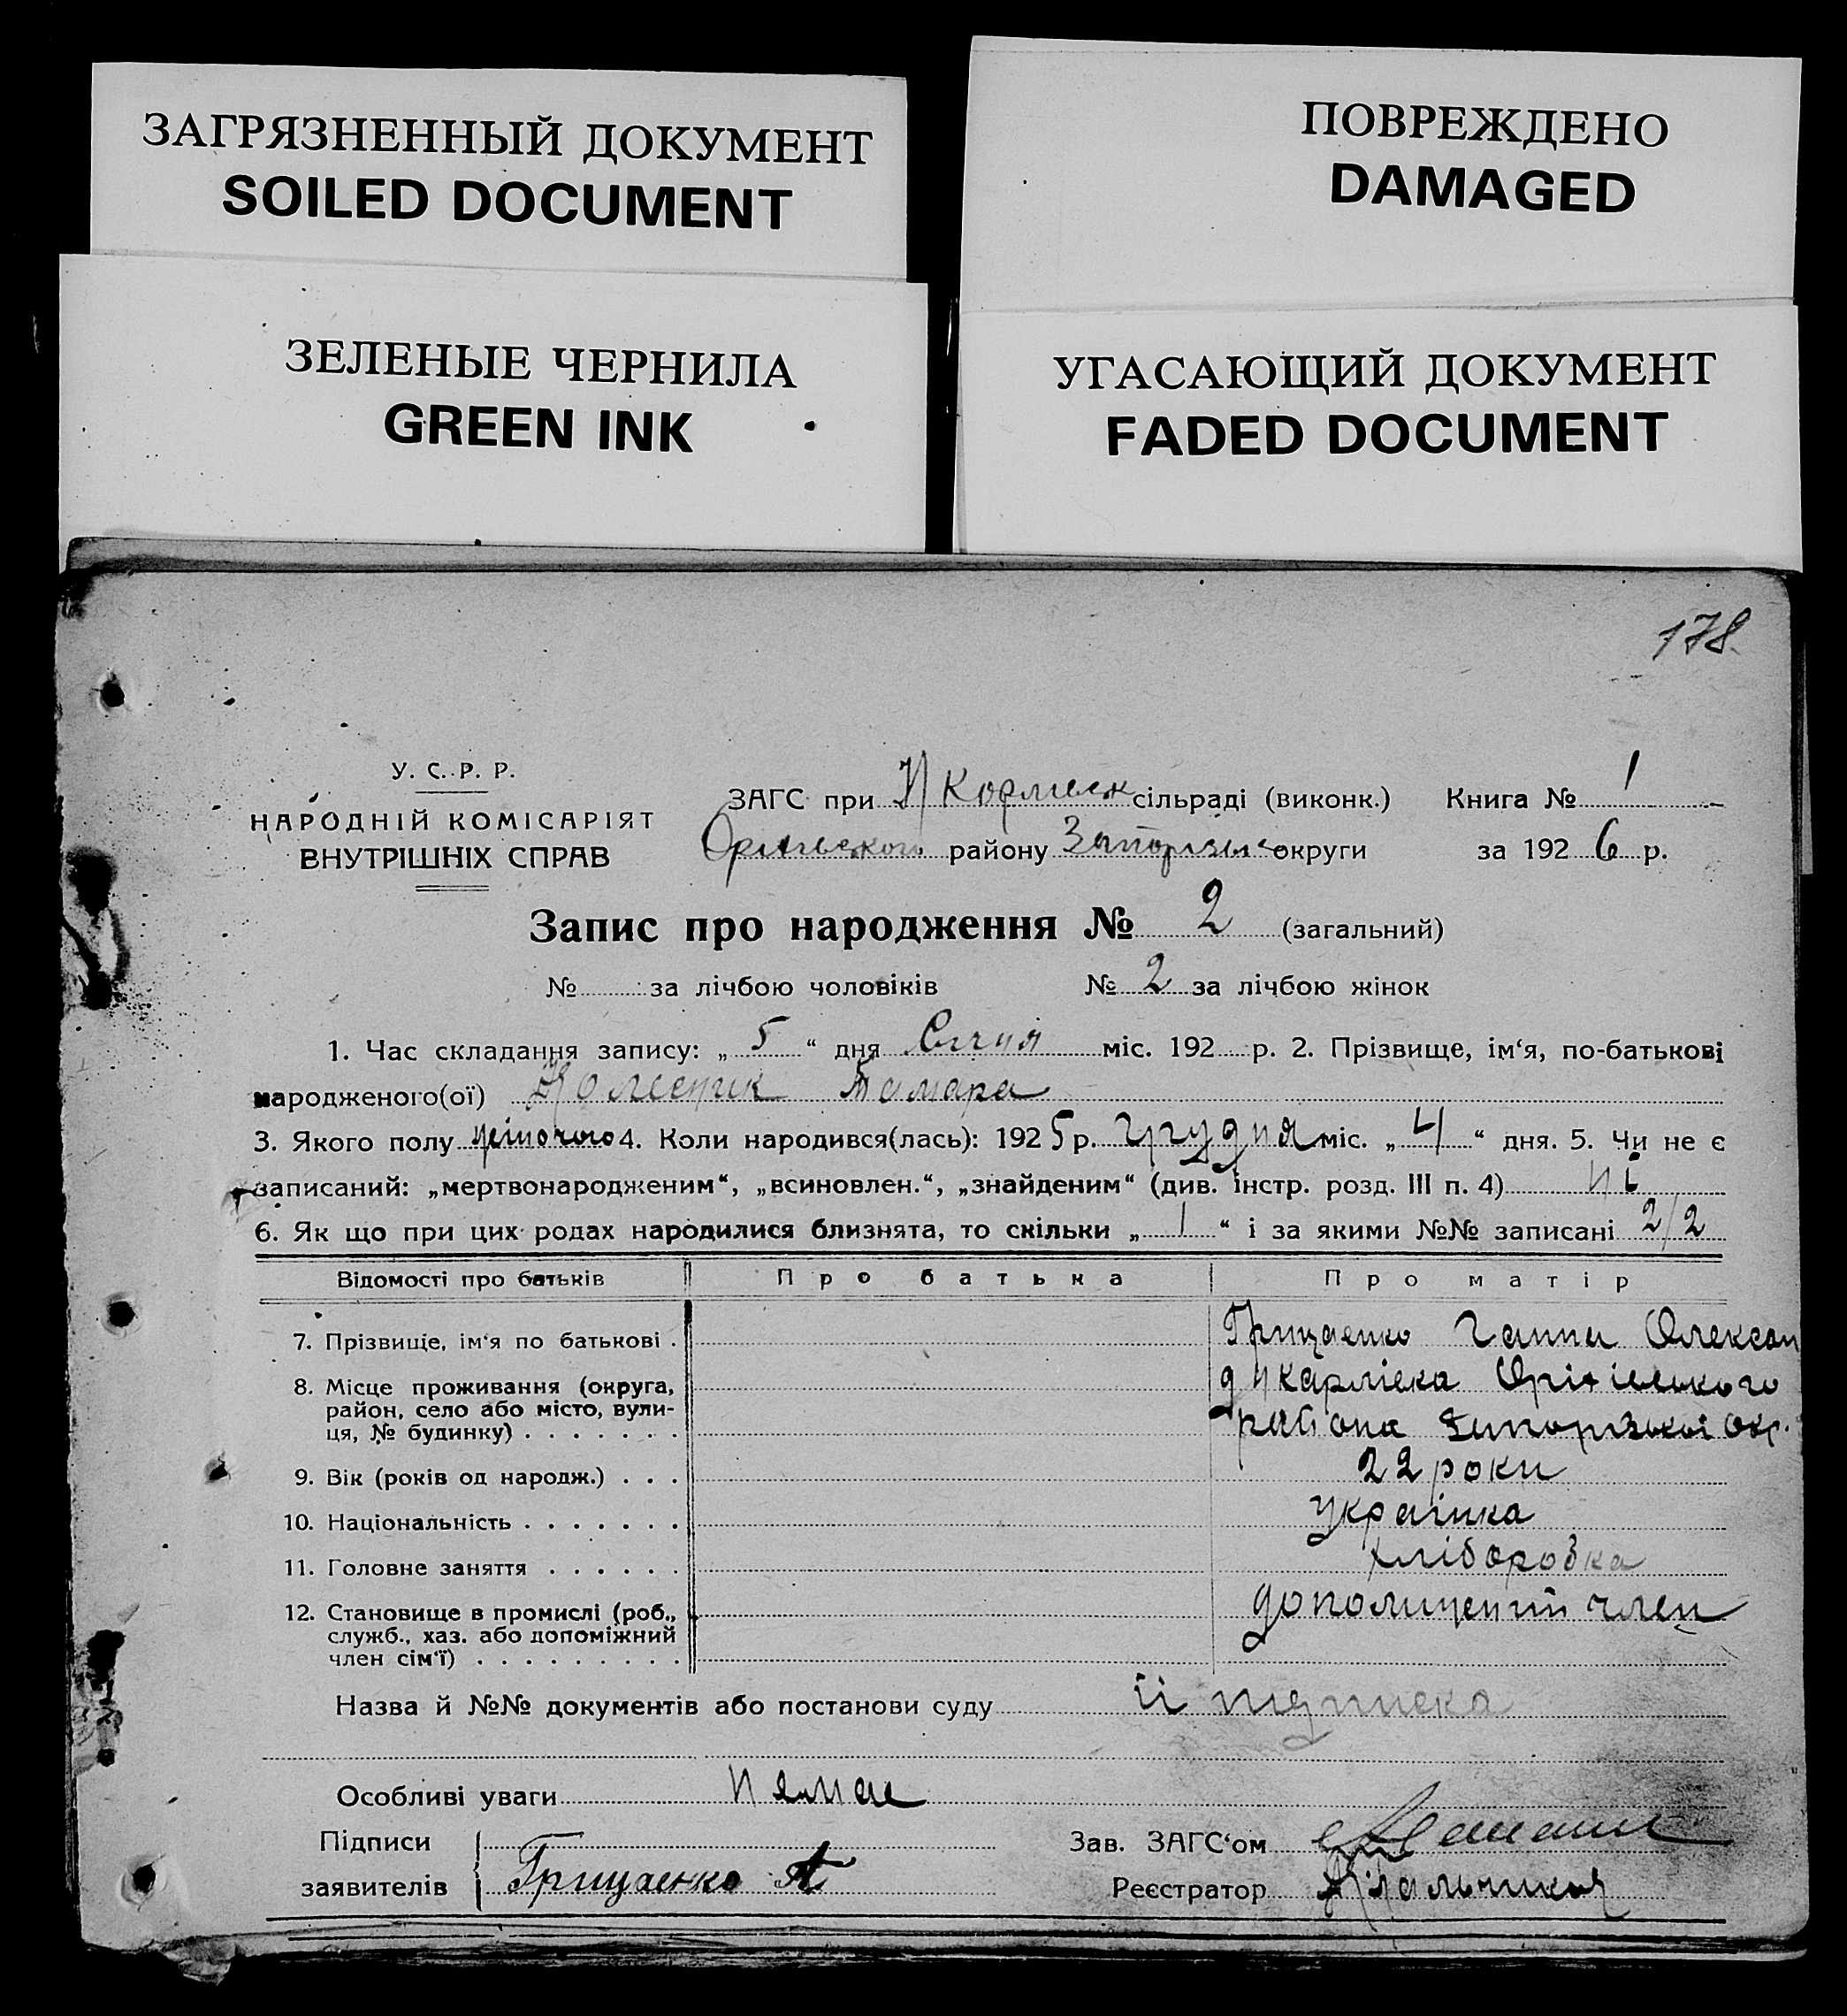 ЗАГРЯЗНЕННЫЙ ДОКУМЕНТ
SOILED DOCUMENT
ПОВРЕЖДЕНО
DAMAGED
ЗЕЛЕНЫЕ ЧЕРНИЛА
GREEN INK
УГАСАЮЩИЙ ДОКУМЕНТ
FADED DOCUMENT
178
У. С. Р. Р.
НАРОДНІЙ КОМІСАРІЯТ
ВНУТРІШНІХ СПРАВ
ЗАГС при сільраді (виконк.) Книга № 1
району округи за 1926 р.
Запис про народження № 2 (загальний)
№ за лічбою чоловіків № 2 за лічбою жінок
1. Час складання запису: „5“ дня Січня міс. 192 р. 2. Прізвище, ім‘я, по-батькові
народженого(ої) Колесник Тамара
3. Якого полу жіночого 4. Коли народився(лась): 1925 р. Грудня міс. „4“ дня. 5. Чи не є
записаний: „мертвонародженим“, „всиновлен.“, „знайденим“ (див. інстр. розд. III п. 4) ні
6. Як що при цих родах народилися близнята, то скільки „1“ і за якими №№ записані 2/2
Відомості про батьків Про батька Про матір
7. Прізвище, ім‘я по батькові . Грицаенко Ганна Олексан
8. Місце проживання (округа,
район, село або місто, вули-
ця, № будинку) . . . . . . . района Запорізької Окр.
9. Вік (років од народж.) . . . 22 роки
10. Національність . . . . . . . українка
11. Головне заняття . . . . . . хліборобка
12. Становище в промислі (роб.,
служб., хаз. або допоміжний
член сім‘ї) . . . . . . . . . член
Назва й №№ документів або постанови суду її підписка
Особливі уваги немае
Підписи Зав. ЗАГС‘ом
заявителів Грицаенко А Реєстратор